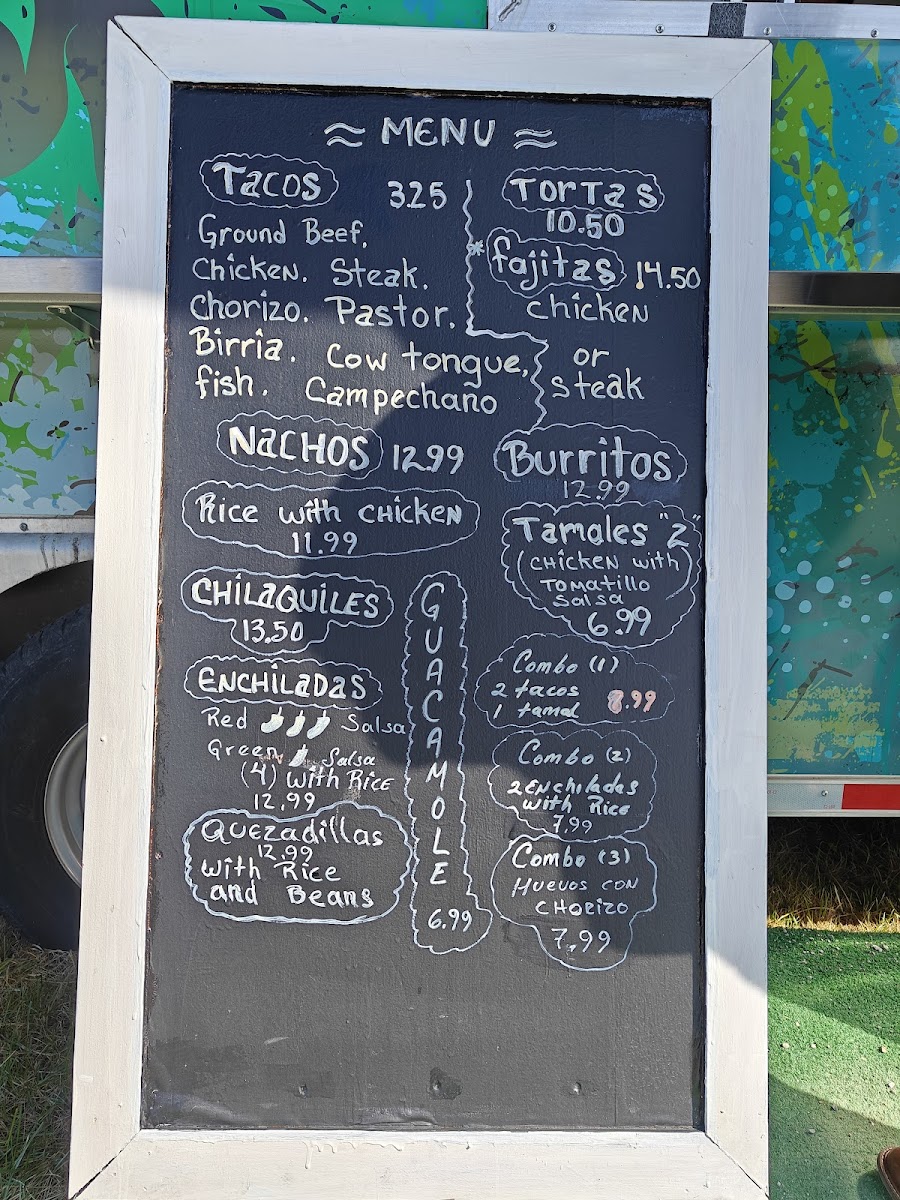 ≈ MENU ≈
Tacos 3.25
Ground Beef,
Chicken. Steak.
Chorizo. Pastor.
Birria. Cow tongue,
fish. Campechano
NACHOS 12.99
Rice with chicken
11.99
CHILAQUILES
13.50
ENCHILADAS
Red Salsa
Green Salsa
(4) with Rice
12.99
Quezadillas
12.99
with Rice
and Beans
GUACAMOLE
6.99
TORTAS
10.50
*fajitas 14.50
chicken
or
steak
Burritos
12.99
Tamales "2"
CHICKEN with
TOMATILLO
Salsa
6.99
Combo (1)
2 tacos
1 tamal 8.99
Combo (2)
2 Enchiladas
with Rice
7.99
Combo (3)
HUEVOS CON
CHORIZO
7.99